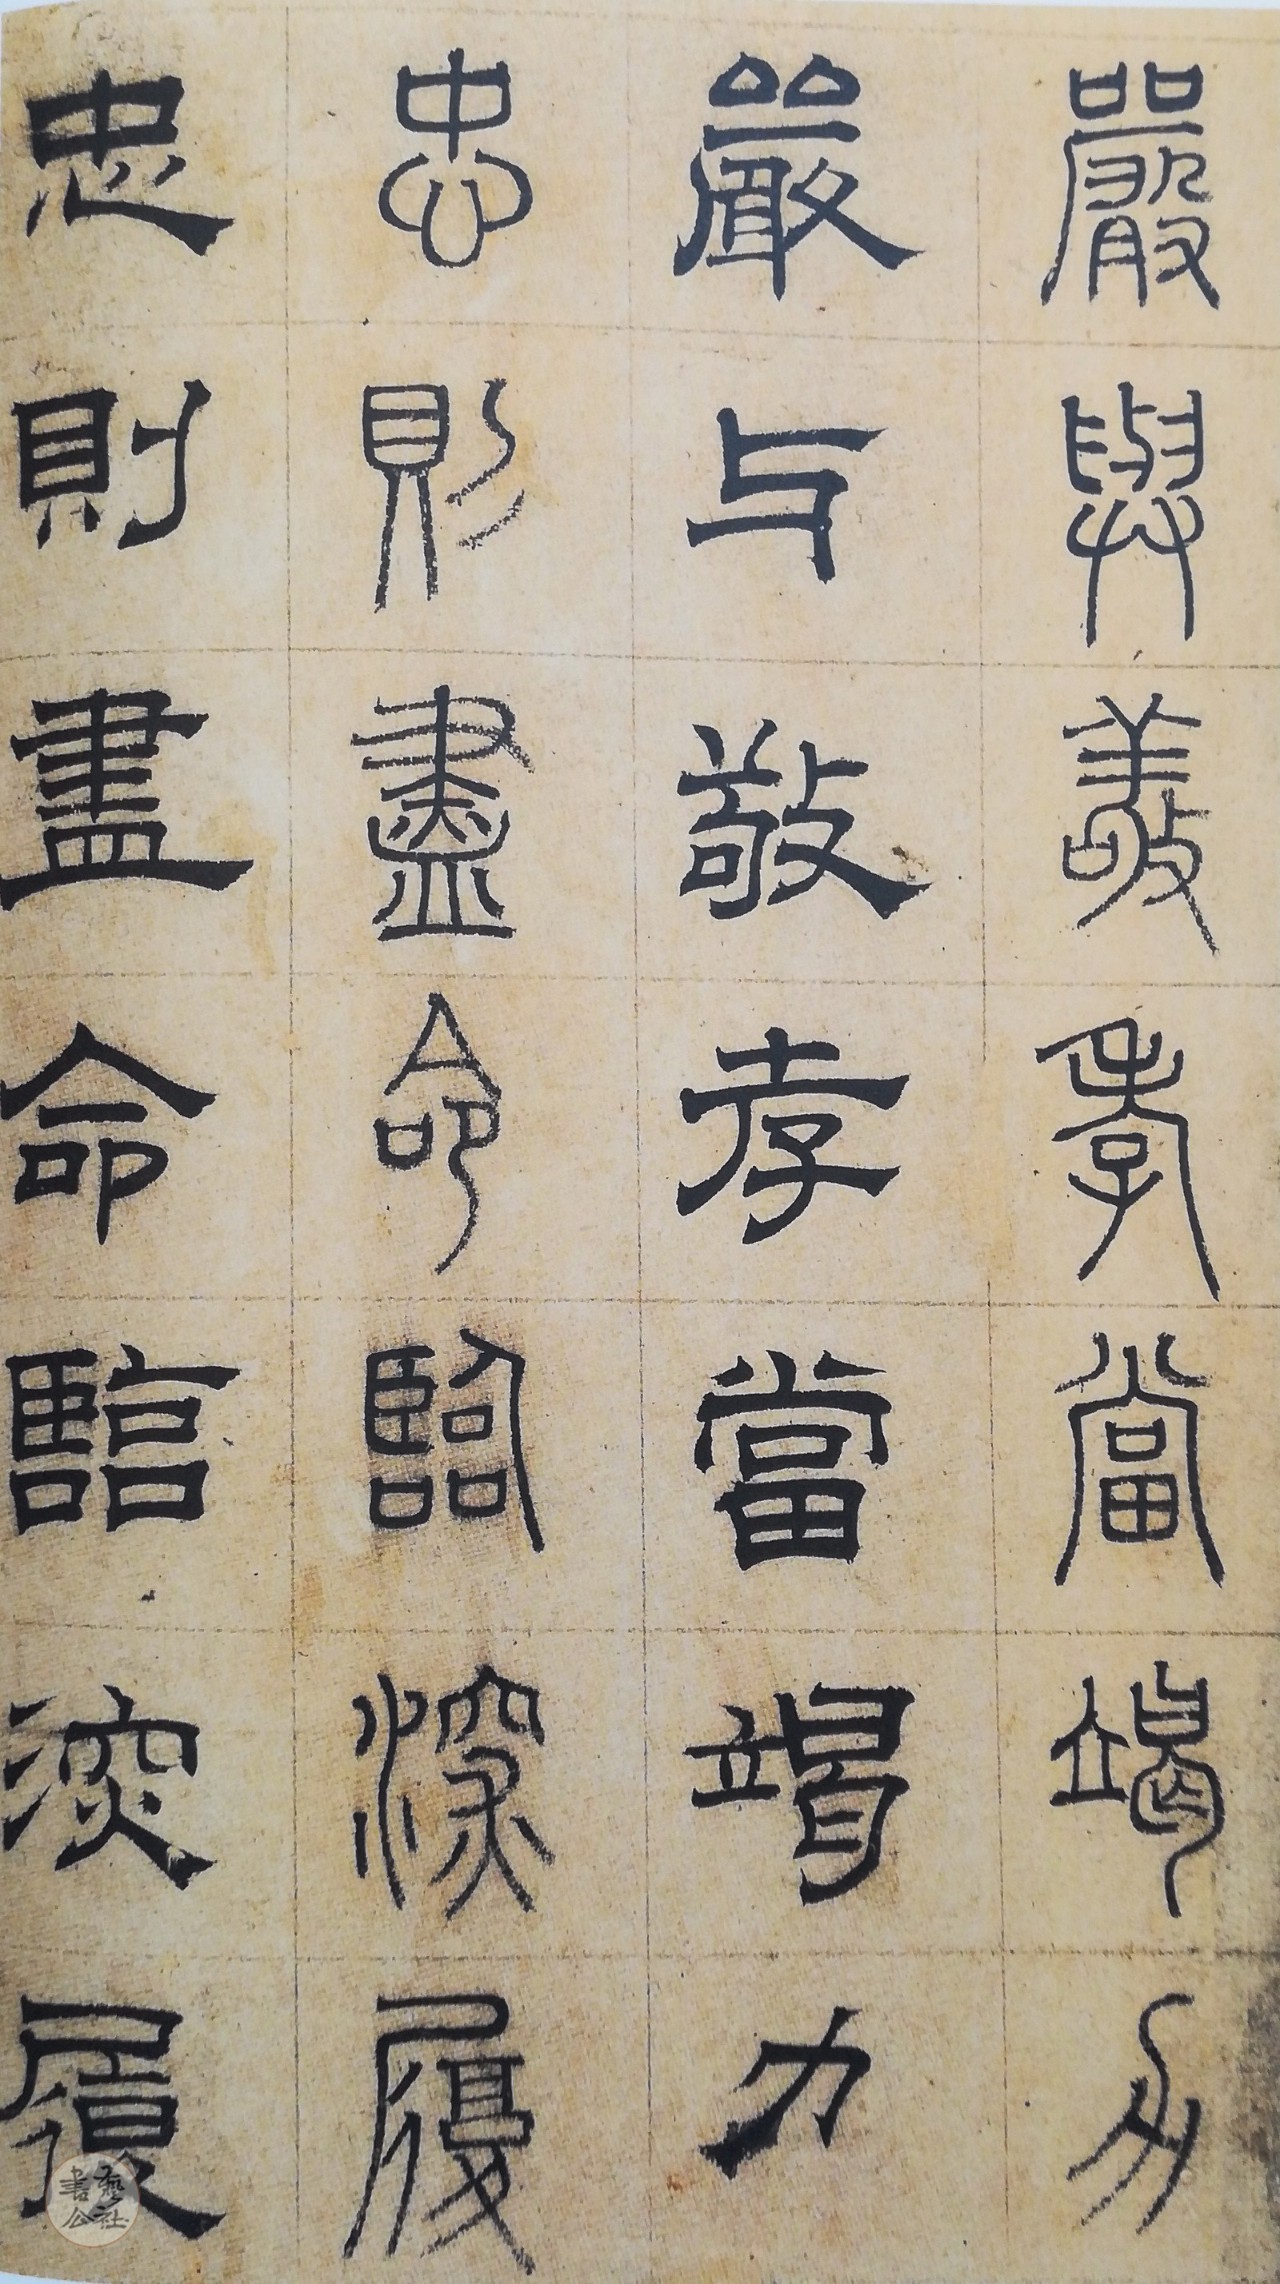 嚴與敬孝當竭力
嚴与敬孝當竭力
忠則盡命臨深履
忠則盡命臨深履
書藝公社